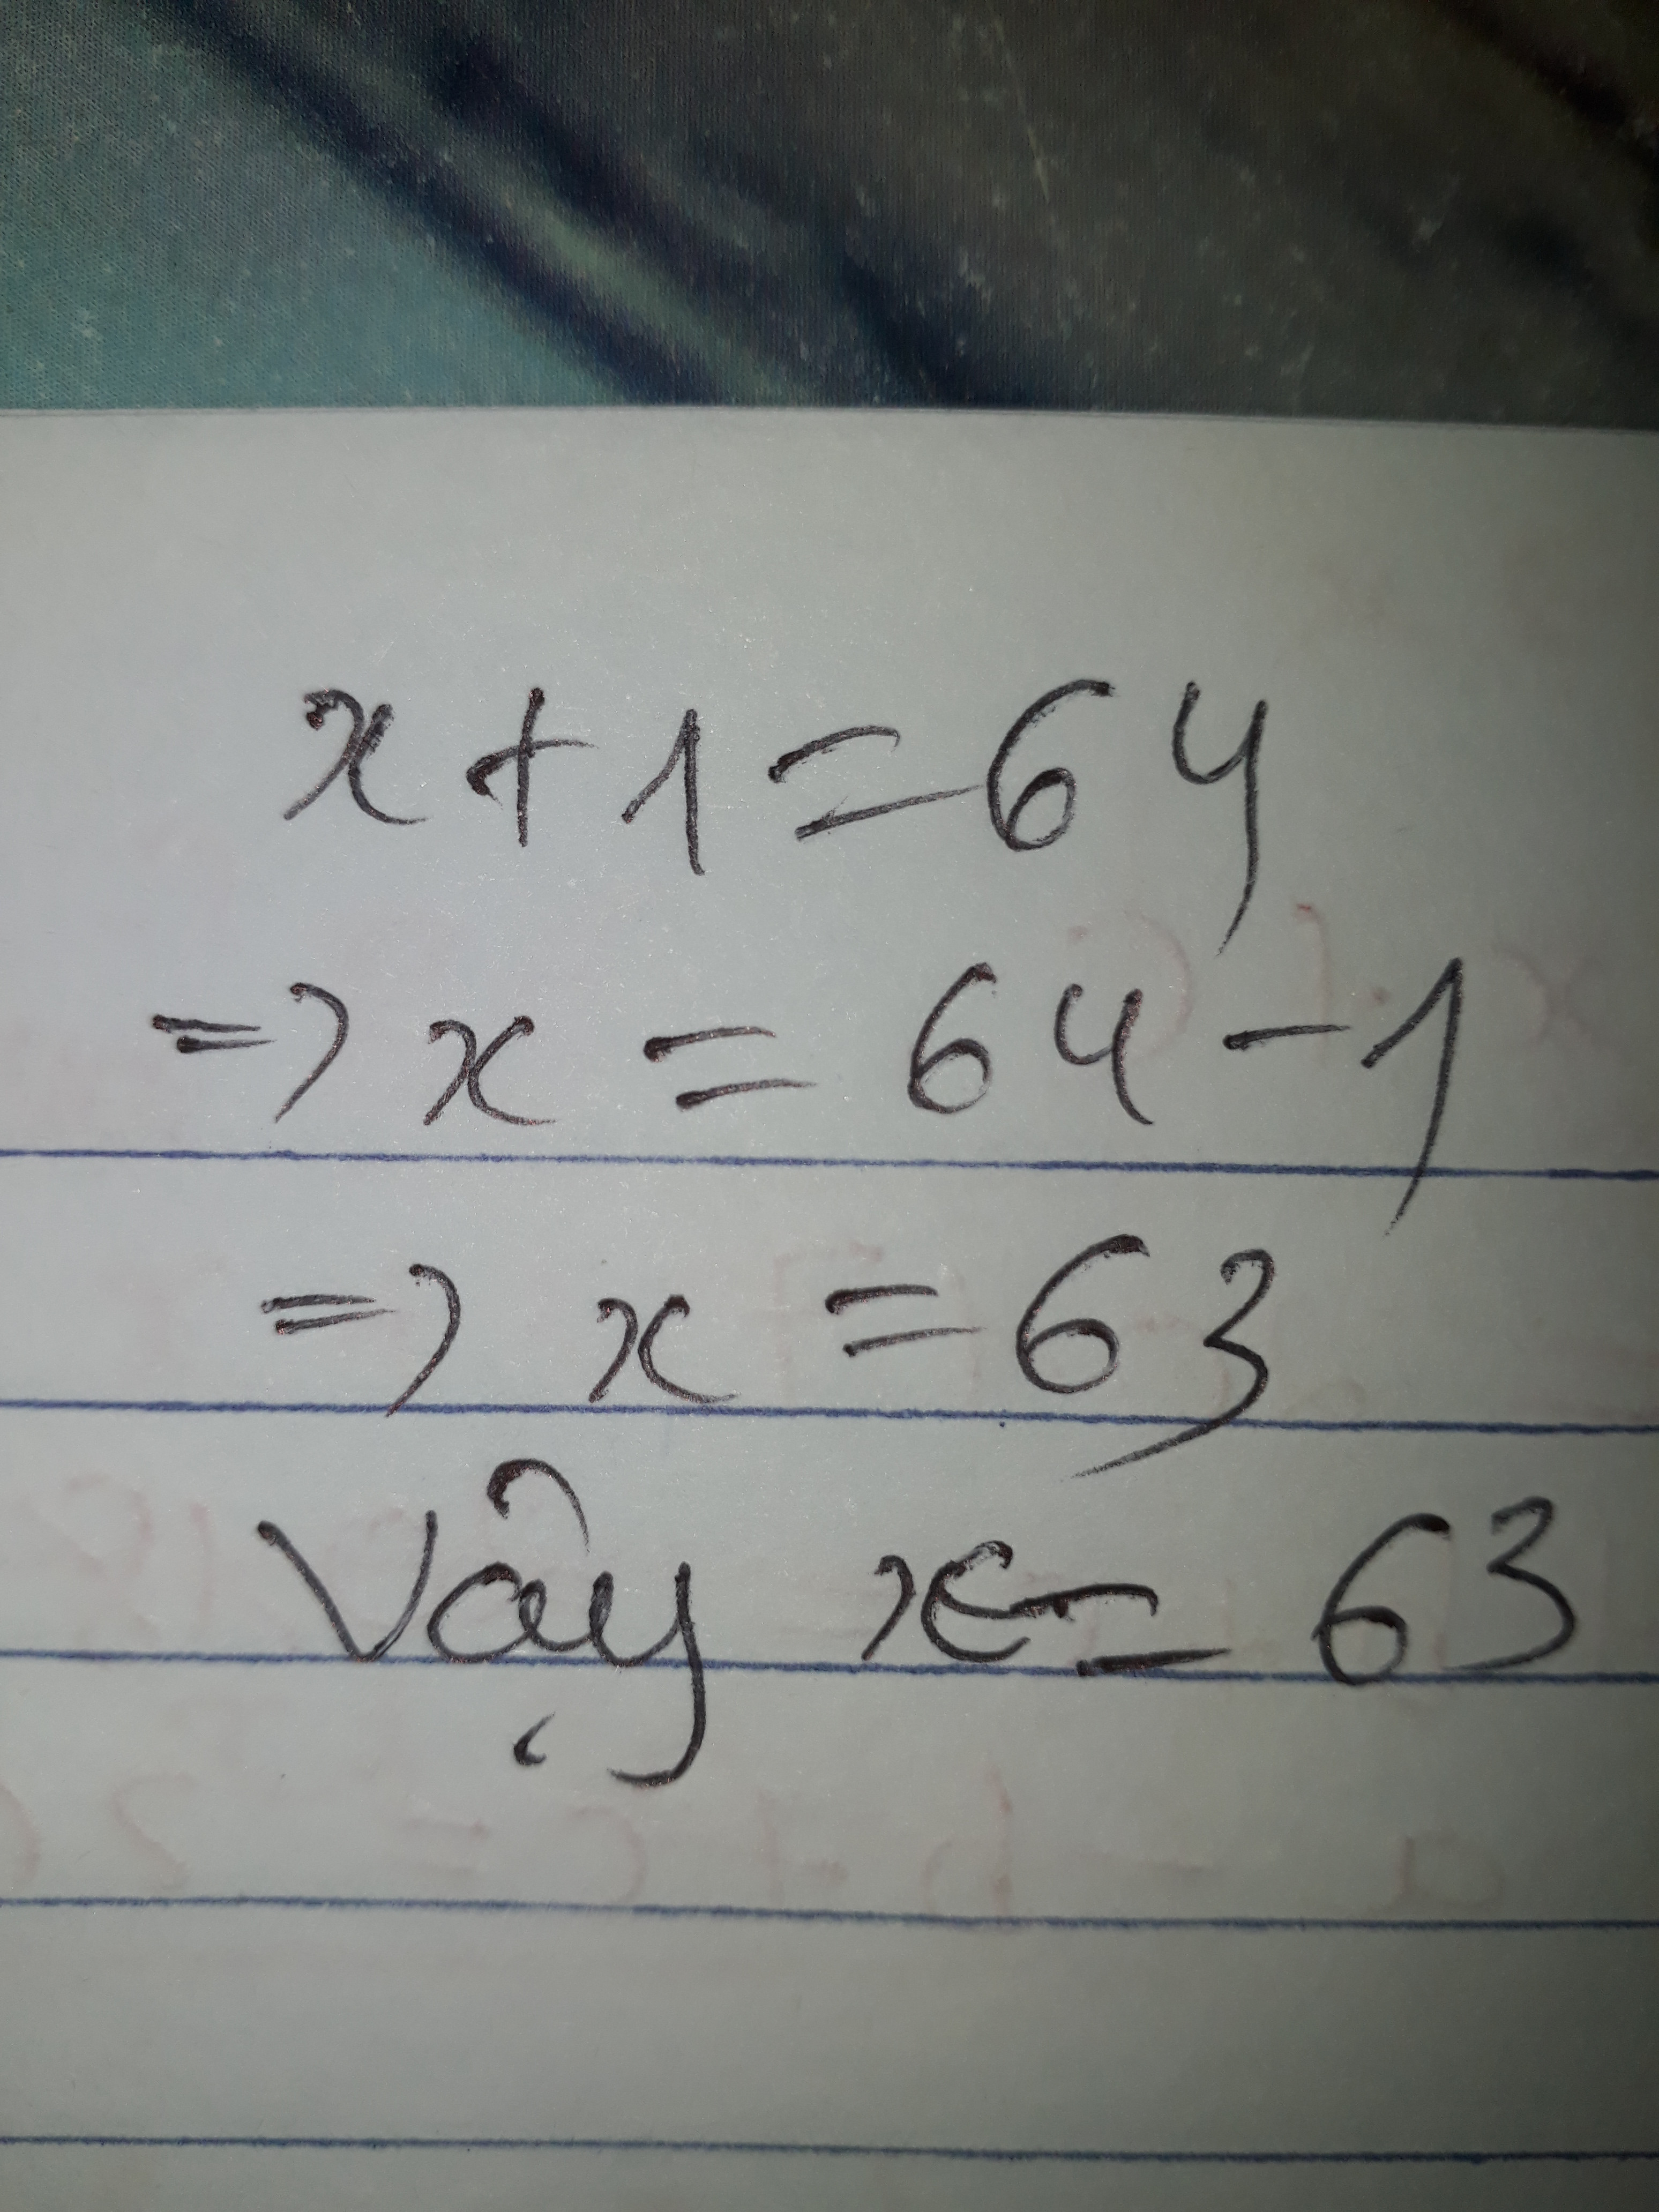 x + 1 = 64
=> x = 64 - 1
=> x = 63
Vậy x = 63